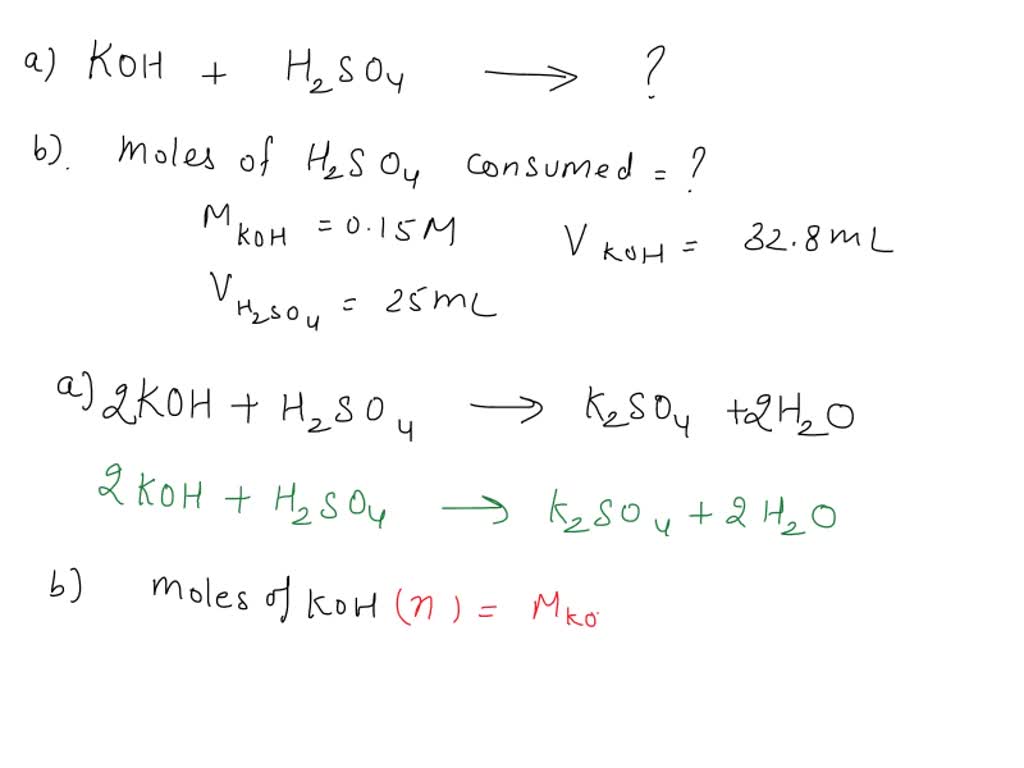 a) KOH + H₂SO₄ ⟶ ?
b). Moles of H₂SO₄ consumed = ?
M KOH = 0.15M V KOH = 32.8mL
V H₂SO₄ = 25mL
a) 2KOH + H₂SO₄ ⟶ K₂SO₄ + 2H₂O
2KOH + H₂SO₄ ⟶ K₂SO₄ + 2H₂O
b) Moles of KOH (n) = M KO